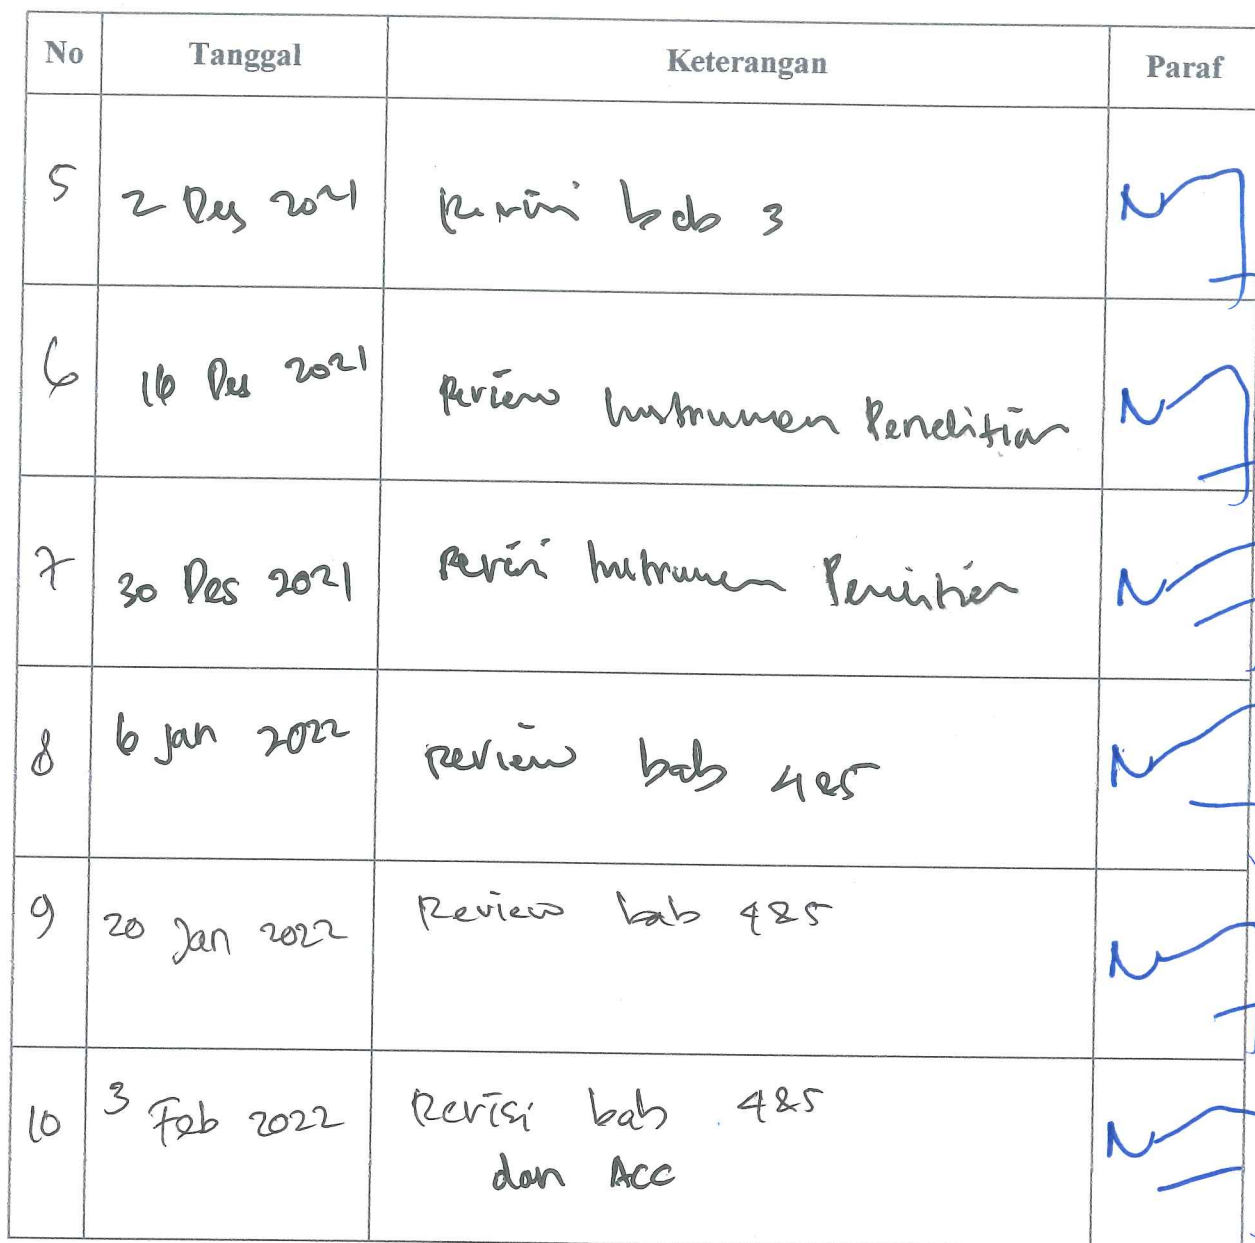 No Tanggal Keterangan Paraf
5 2 Des 2021 Revisi bab 3
6 16 Des 2021 Review Instrumen Penelitian
7 30 Des 2021 Revisi Instrumen Penelitian
8 6 Jan 2022 Review bab 4&5
9 20 Jan 2022 Review bab 4&5
10 3 Feb 2022 Revisi bab 4&5
dan ACC